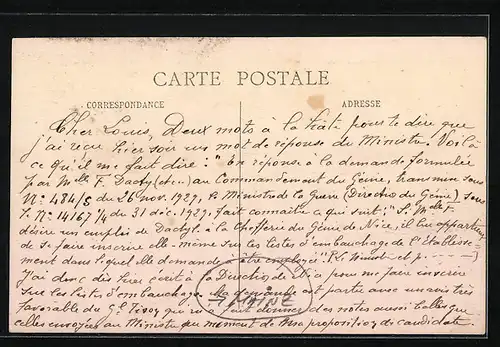 CARTE POSTALE
CORRESPONDANCE
ADRESSE
Cher Louis, Deux mots à la hâte pour te dire que
j'ai reçu hier soir un mot de réponse du Ministre. Voilà
ce qu'il me fait dire : "En réponse à la demande formulée
par Mlle F. Dactylo au Commandement du Génie, transmise sous
N° 484/S du 26 nov. 1929, le Ministre de la Guerre (Direction du Génie) sous
S. N° 14167 1/4 du 31 déc. 1929, fait connaître ce qui suit : "Si Mlle F
désire un emploi de Dactylo à la Chefferie du Génie de Nice, il lui appartient
de se faire inscrire elle-même sur les listes d'embauchage de l'Etablisse-
ment dans lequel elle demande à être employée. P. le Ministre et p.
J'ai donc dès hier écrit à la Direction de Nice pour me faire inscrire
sur les listes d'embauchage. Ma demande est partie avec un avis très
favorable du Gl qui a fait donner des notes aussi belles que
celles envoyées au Ministre au moment de ma proposition de candidate.